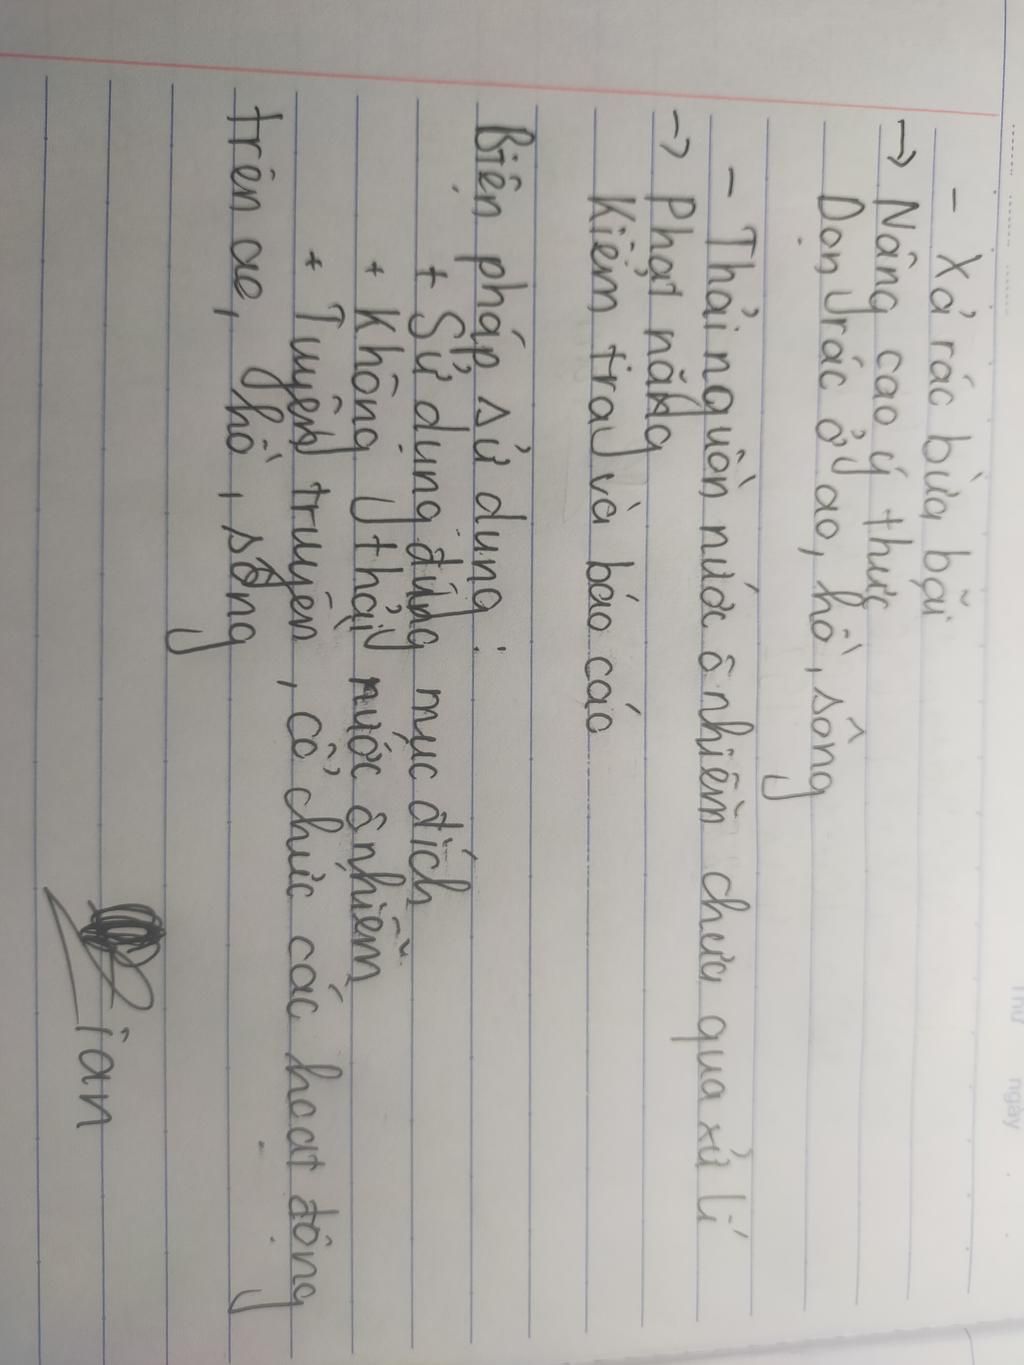 Thứ ngày
- Xả rác bừa bãi
→ Nâng cao ý thức
Dọn rác ở ao, hồ, sông
- Thải nguồn nước ô nhiễm chưa qua xử lí
→ Phạt nặng
Kiểm tra và báo cáo
Biện pháp sử dụng:
+ Sử dụng đúng mục đích
+ Không thải nước ô nhiễm
+ Tuyên truyền, cổ chức các hoạt động
trên ao, hồ, sông